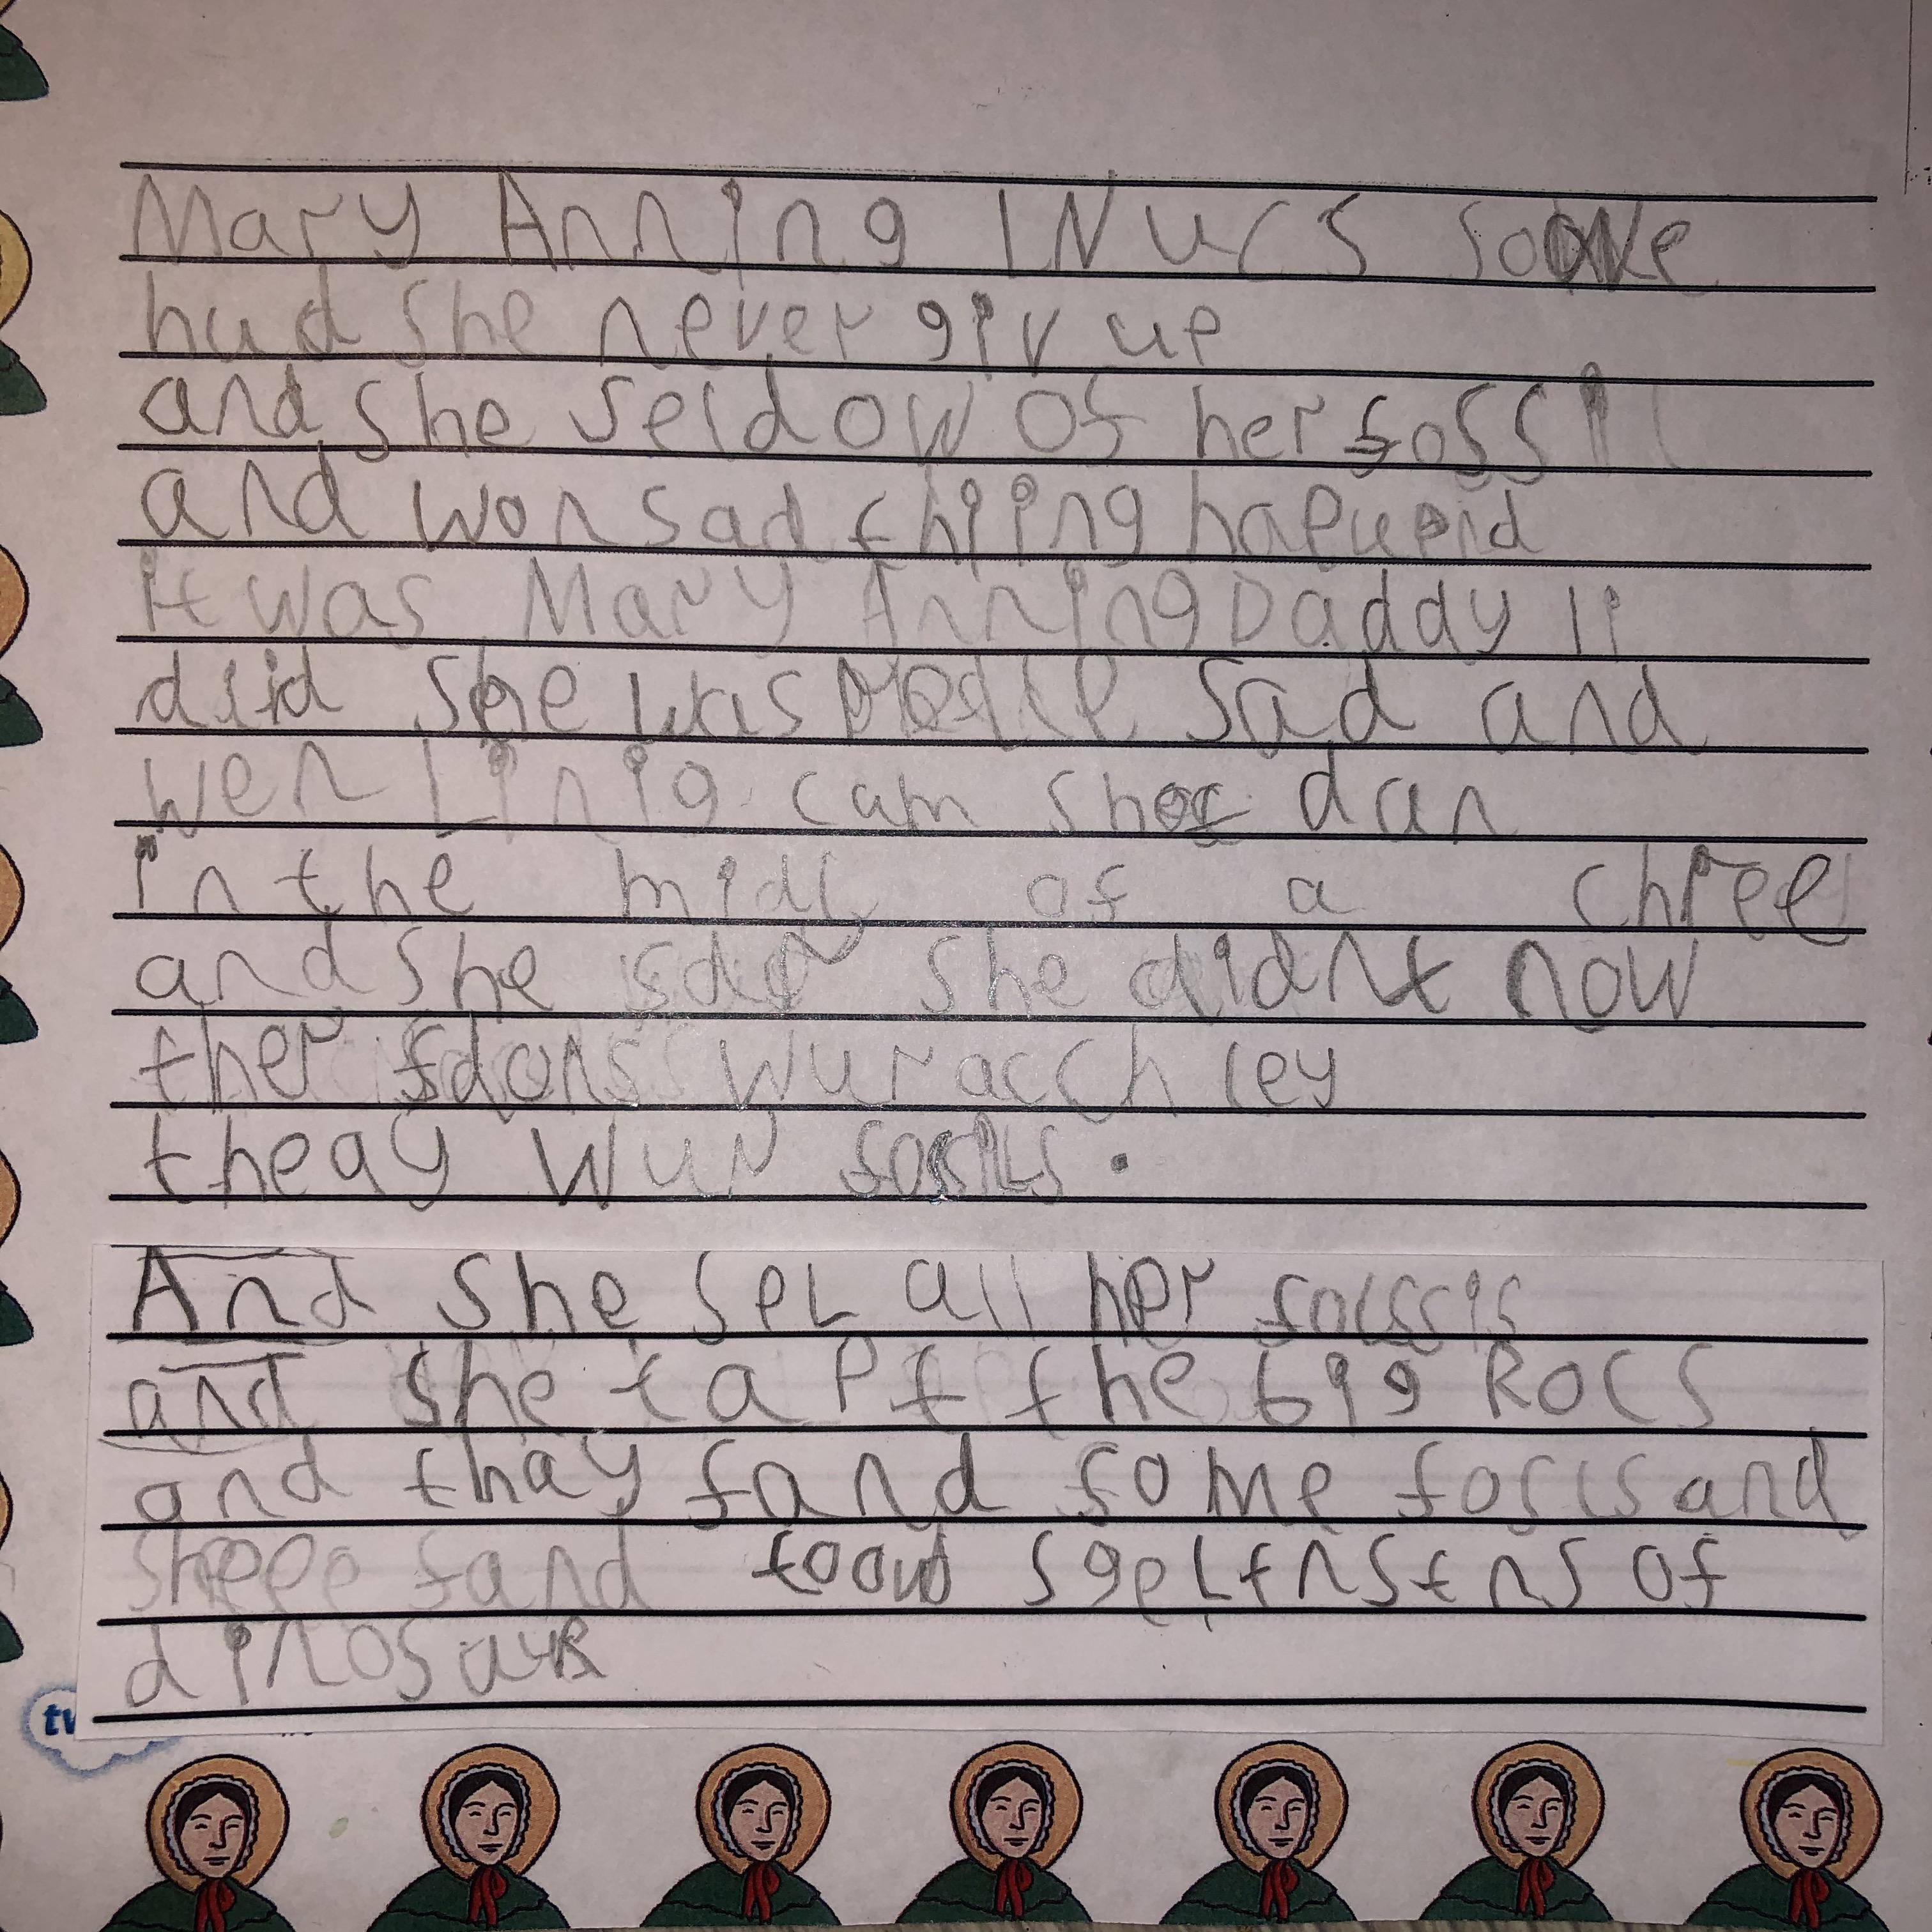 Mary Anning Wurcs soowe
had she never giv up
and she seld ow of her fossil
and won sad thiing hapupid
it was Mary Anning Daddy
diid she was sad and
wen Linig cam shoc dan
in the midl of a chree
and she she didnt now
ther sdons wur acchley
theay wur fossils.
And she sel all her folssis
and she tapt the big Rocs
and thay fand some foscls and
sheee fand sgeltnstns of
dinosaur
tw